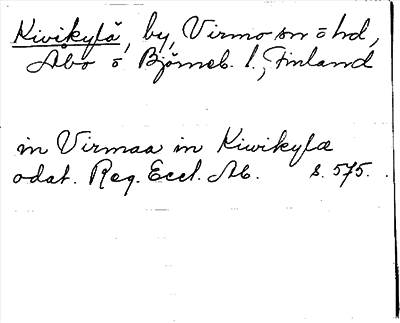 Kivikylä, by, Virmo sn o hd,
Åbo o Björneb. l., Finland
in Virmaa in Kiwikylæ
odat. Reg. Eccl. Ab. s. 575.